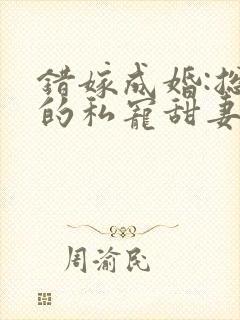 错嫁成婚:
的私宠甜妻
周渝民